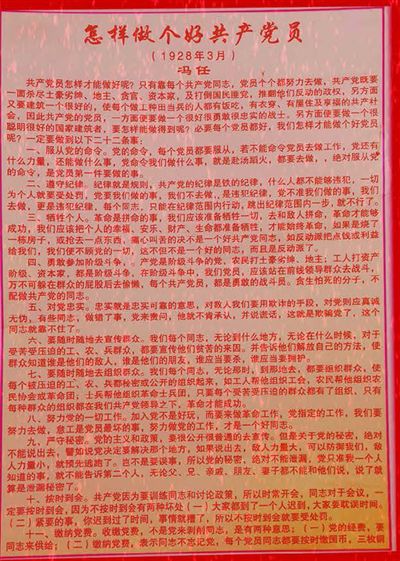 怎样做个好共产党员
（1928年3月）
冯任
共产党员怎样才能做好呢？只有靠每个共产党同志，党员个个都努力去做，共产党既要
一面杀尽土豪劣绅、地主、贪官、资本家，及打倒国民政党，推翻他们反动的政权，另方面
又要建筑一个很好的，使每个做工种田当兵的人都有饭吃，有衣穿、有屋住及享福的共产社
会，因此共产党的党员，一方面便要做一个很好很勇敢很忠实的战士。另方面便要做一个很
聪明很好的国家建筑者，要怎样能做得到呢？必要每个党员都好，我们怎样才能做个好党员
呢？一定要做到以下二十二条事：
一、服从党的命令。党的命令，每个党员都要服从，若不能命令党员去做工作，党还有
什么力量，还能做什么事，党命令我们做什么事，就是赴汤蹈火，都要去做，绝对服从党
的命令，是党员第一件要做的事。
二、遵守纪律。纪律就是规则，共产党的纪律是铁的纪律，什么人都不能够违犯，一切
为个人就要受处罚，党要我们做的事，我们不去做，是违犯纪律，党不准我们做的事，我们
去做，更是违犯纪律，每个同志，只能在纪律范围内行动，跳出纪律范围内一步，就不行了。
三、牺牲个人。革命是拼命的事，我们应该准备牺牲一切，去和敌人拼命，革命才能够
成功，我们应该把个人的幸福、安乐、财产、生命都准备牺牲，才能始终革命，如果是烧了
一栋房子，或抢去一点东西，痛心叫苦的决不是一个好共产党同志，如反动派把点钱或利益
给我们，我们便不顾党的一切，这不但不是一个好的同志，而且是反动派了。
四、勇敢参加阶级斗争。共产党是阶级斗争的党，农民打土豪劣绅、地主；工人打资产
阶级、资本家，都是阶级斗争，在阶级斗争中，我们党员，应该站在前线领导群众去战斗，
万不可躲在群众的屁股后去偷懒，每个共产党员，都是勇敢的战斗员。贪生怕死的分子，不
配做共产党的同志。
五、对党忠实。忠实就是忠实可靠的意思，对敌人我们要用欺诈的手段，对党则应真诚
无伪，有些同志，做错了事，党来责问，他就不肯承认，并说谎话，这就是欺骗党了，这个
同志就靠不住了。
六、要随时随地去宣传群众。我们每个同志，无论到什么地方，无论在什么时候，对于
受苦受压迫的工、农、兵群众，都要宣传他们使苦的来因。并告诉他们解放自己的方法，使
群众知道谁是他们的敌人，谁是他们的朋友，谁应当要杀，谁应当要拥护。
七、要随时随地去组织群众。我们每个同志，无论那时，到那地去，都要组织群众，使
每个被压迫的工、农、兵都秘密或公开的组织起来，如工人帮他组织工会，农民帮他组织农
民协会或革命团；士兵帮他组织革命士兵团，只要每个受苦受压迫的群众都有了组织。只有
每种群众的组织都在我们共产党领导之下，革命才能成功。
八、努力党的一切工作。加入党不是好玩，而要来做革命工作，党指定的工作，我们要
努力去做，怠工是党员最坏的事，努力做党的工作，才是一个好同志。
九、严守秘密。党的主义和政策，要很公开很普遍的去宣传。但是关于党的秘密，绝对
不能说出去，譬如说党决定要解决那个地方，如果说出去，敌人力量大，可以防御我们，敌
人力量小，就预先逃跑了。岂不是要误事，所以党的秘密，绝对不能泄漏，党只准我一个人
知道的事，就不能告诉第二个人，无论父、兄、亲戚、朋友、妻子都不能和他们说，说了就
算是泄漏秘密了。
十、按时到会。共产党因为要训练同志和讨论政策，所以时常开会，同志对于会议，一
定要按时到会，因为不按时到会有两种坏处（一）大家都到了一个人迟到，大家要耽误时间。
（二）紧要的事，你迟到过了时间，事情就糟了，所以不按时到会就要受处罚。
十一、缴纳党费。收缴党费，不是党来剥削同志，是有两种意思；（一）党的经费，要
同志来供给；（二）缴纳党费，表示同志不忘记党，每个党员同志都要按时缴国币，三枚铜